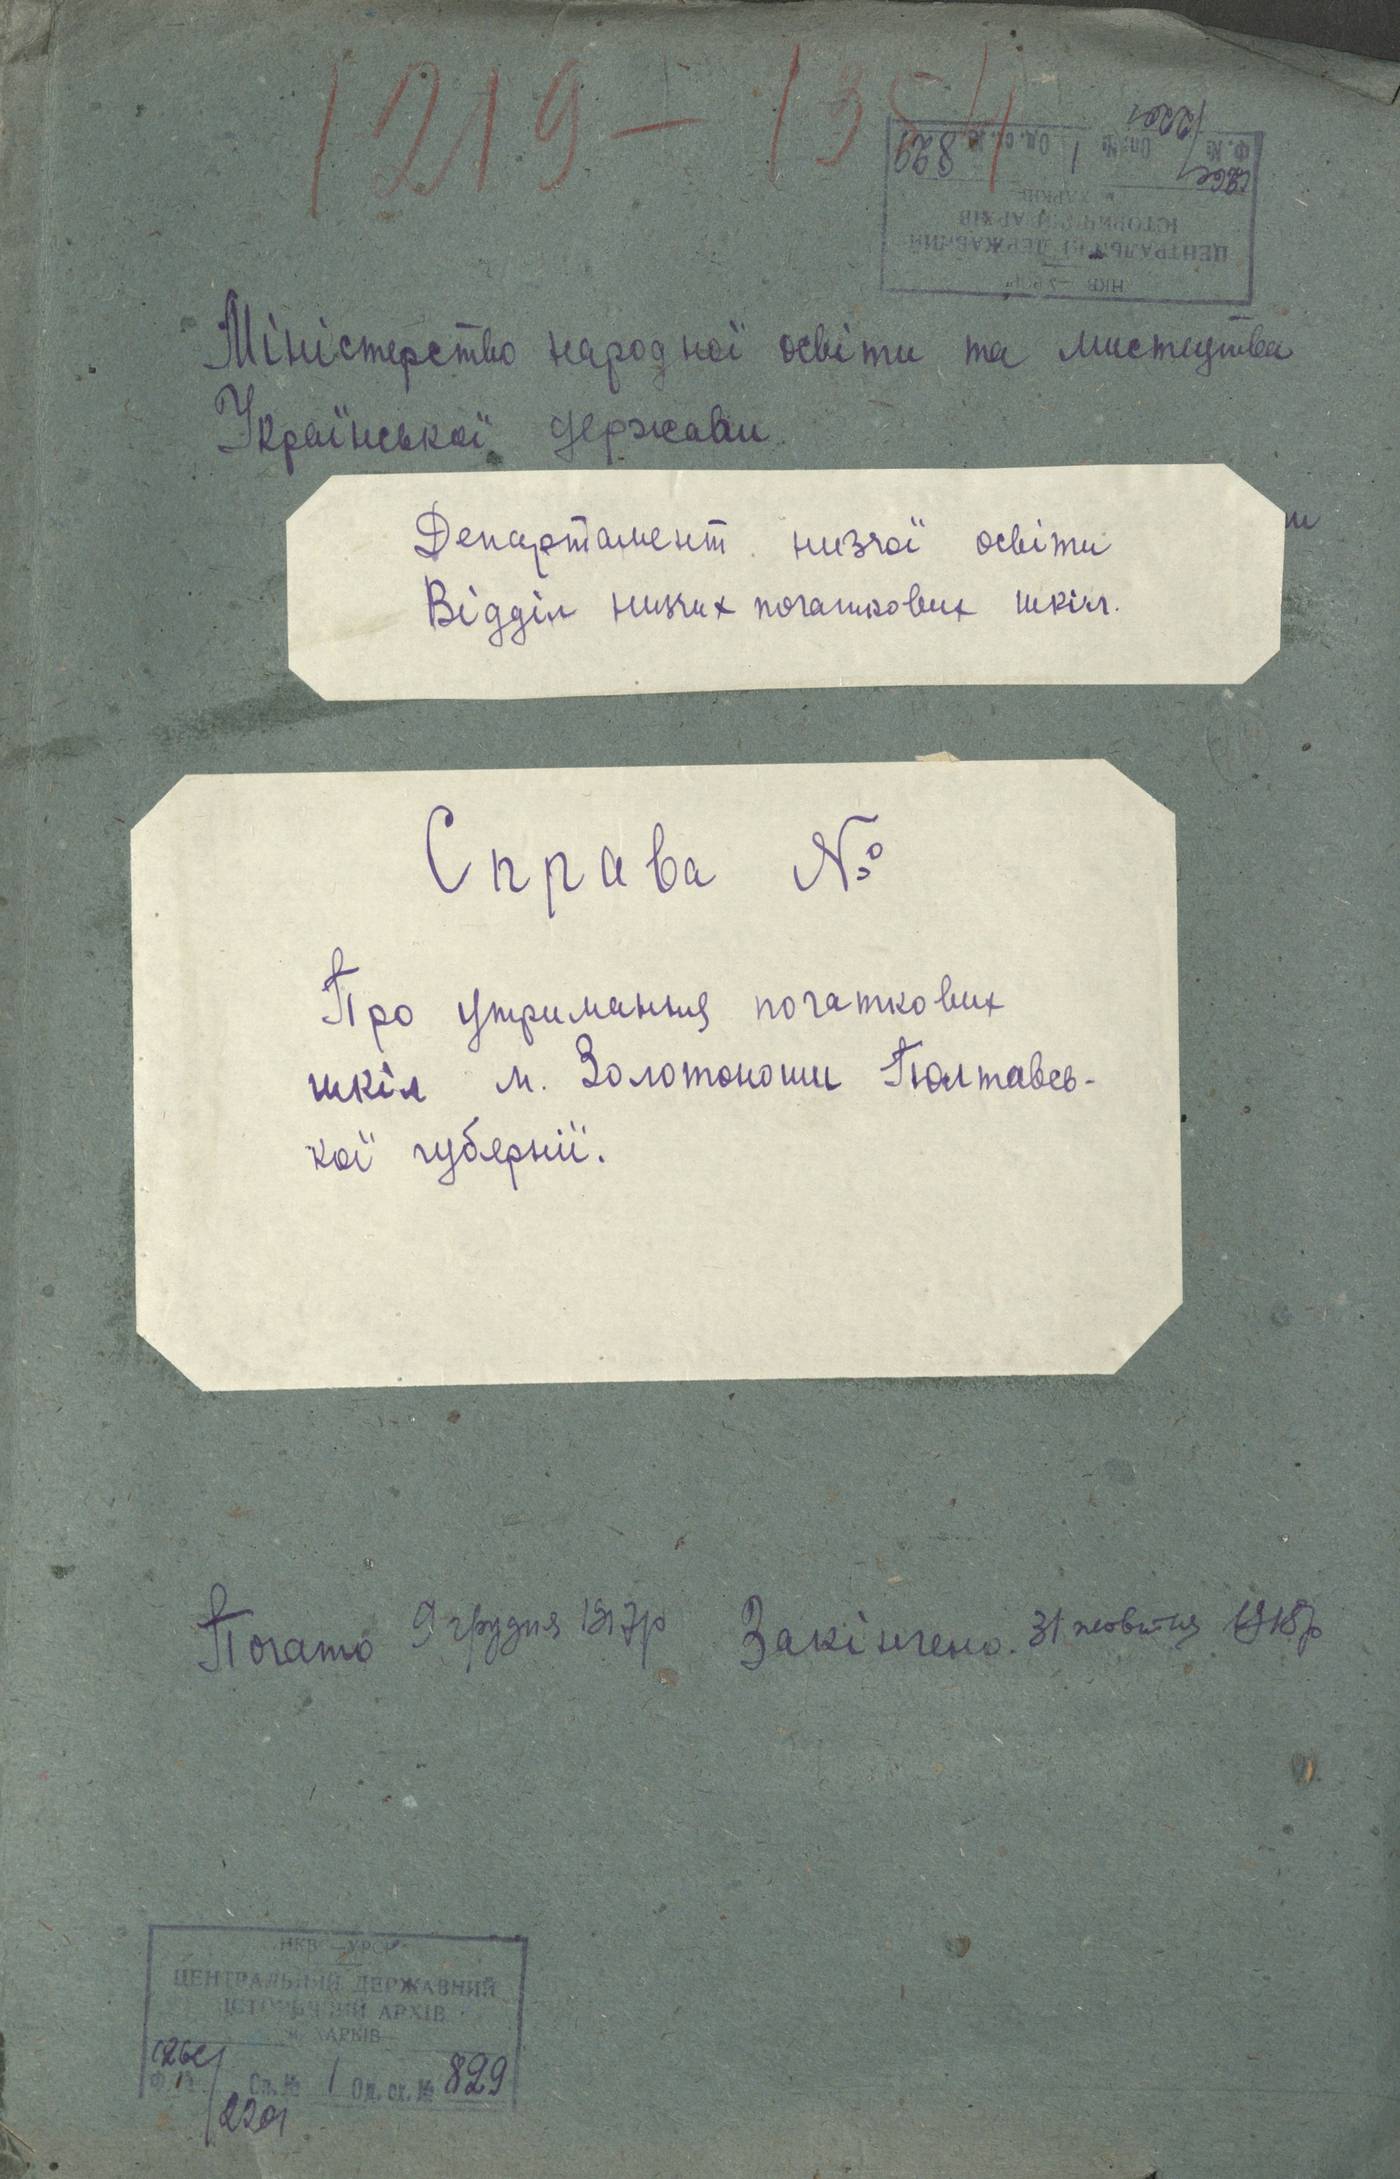 1219 — 1354
НКВ — УРСР
ЦЕНТРАЛЬНИЙ ДЕРЖАВНИЙ
ІСТОРИЧНИЙ АРХІВ
м. ХАРКІВ
Ф. № Оп. № 1 Од. сх. № 829
2201
Міністерство народної освіти та мистецтва
Української держави
Департамент низчої освіти
Відділ низчих початкових шкіл.
Справа №
Про утримання початкових
шкіл м. Золотоноши Полтавсь-
кої губернії.
Почато 9 грудня 1917р Закінчено. 31 жовтня 1918р
НКВ — УРСР
ЦЕНТРАЛЬНИЙ ДЕРЖАВНИЙ
ІСТОРИЧНИЙ АРХІВ
м. ХАРКІВ
Ф. № Оп. № 1 Од. сх. № 829
2201